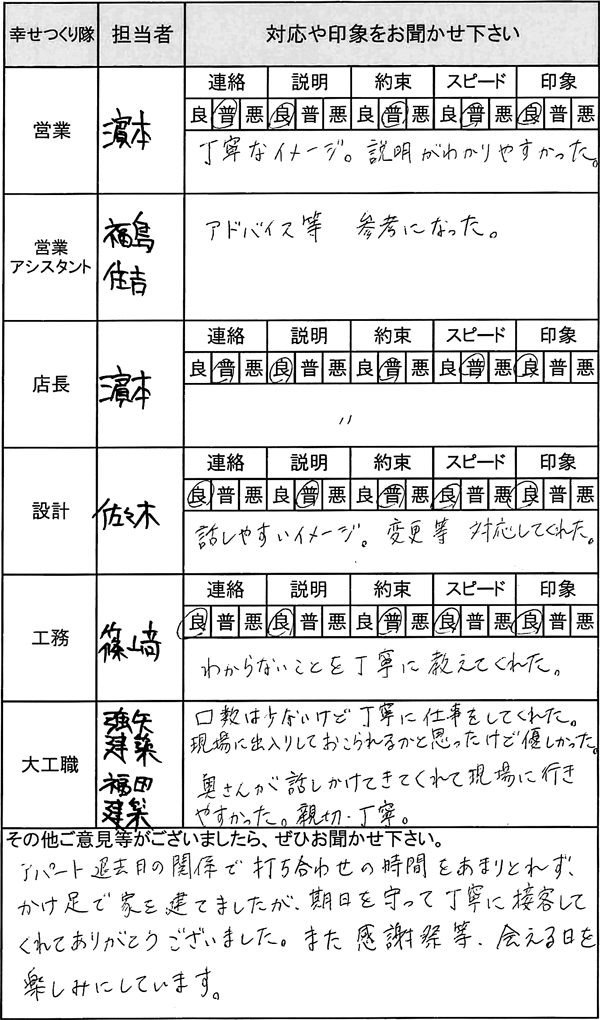 幸せつくり隊 担当者 対応や印象をお聞かせ下さい
営業 濱本
連絡 説明 約束 スピード 印象
良 普 悪 良 普 悪 良 普 悪 良 普 悪 良 普 悪
丁寧なイメージ。説明がわかりやすかった。
営業
アシスタント
福島
住吉
アドバイス等 参考になった。
店長 濱本
連絡 説明 約束 スピード 印象
良 普 悪 良 普 悪 良 普 悪 良 普 悪 良 普 悪
〃
設計 佐々木
連絡 説明 約束 スピード 印象
良 普 悪 良 普 悪 良 普 悪 良 普 悪 良 普 悪
話しやすいイメージ。変更等 対応してくれた。
工務 篠崎
連絡 説明 約束 スピード 印象
良 普 悪 良 普 悪 良 普 悪 良 普 悪 良 普 悪
わからないことを丁寧に教えてくれた。
大工職
強矢
建築
福田
建築
口数は少ないけど丁寧に仕事をしてくれた。
現場に出入りしておこられるかと思ったけど優しかった。
奥さんが話しかけてきてくれて現場に行き
やすかった。親切・丁寧。
その他ご意見等がございましたら、ぜひお聞かせ下さい。
アパート退去日の関係で打ち合わせの時間をあまりとれず、
かけ足で家を建てましたが、期日を守って丁寧に接客して
くれてありがとうございました。また感謝祭等、会える日を
楽しみにしています。